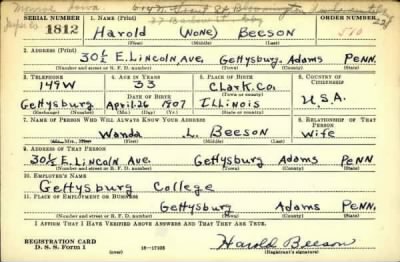 Monroe, Iowa
SERIAL NUMBER
1812
1. NAME (Print)
Harold (NONE) Beeson
(First) (Middle) (Last)
2. ADDRESS (Print)
30½ E. Lincoln Ave. Gettysburg, Adams Penn.
(Number and street or R. F. D. number) (Town) (County) (State)
3. TELEPHONE
149W
Gettysburg
(Exchange) (Number)
4. AGE IN YEARS
33
DATE OF BIRTH
April 26 1907
(Mo.) (Day) (Yr.)
5. PLACE OF BIRTH
Clark Co.
(Town or county)
Illinois
(State or country)
6. COUNTRY OF CITIZENSHIP
U.S.A.
7. NAME OF PERSON WHO WILL ALWAYS KNOW YOUR ADDRESS
Wanda L. Beeson
(First) (Middle) (Last)
8. RELATIONSHIP OF THAT PERSON
Wife
9. ADDRESS OF THAT PERSON
30½ E. Lincoln Ave. Gettysburg Adams Penn
(Number and street or R. F. D. number) (Town) (County) (State)
10. EMPLOYER'S NAME
Gettysburg College
11. PLACE OF EMPLOYMENT OR BUSINESS
Gettysburg Adams Penn.
(Number and street or R. F. D. number) (Town) (County) (State)
I AFFIRM THAT I HAVE VERIFIED ABOVE ANSWERS AND THAT THEY ARE TRUE.
REGISTRATION CARD
D. S. S. Form 1
(over)
Harold Beeson
(Registrant's signature)